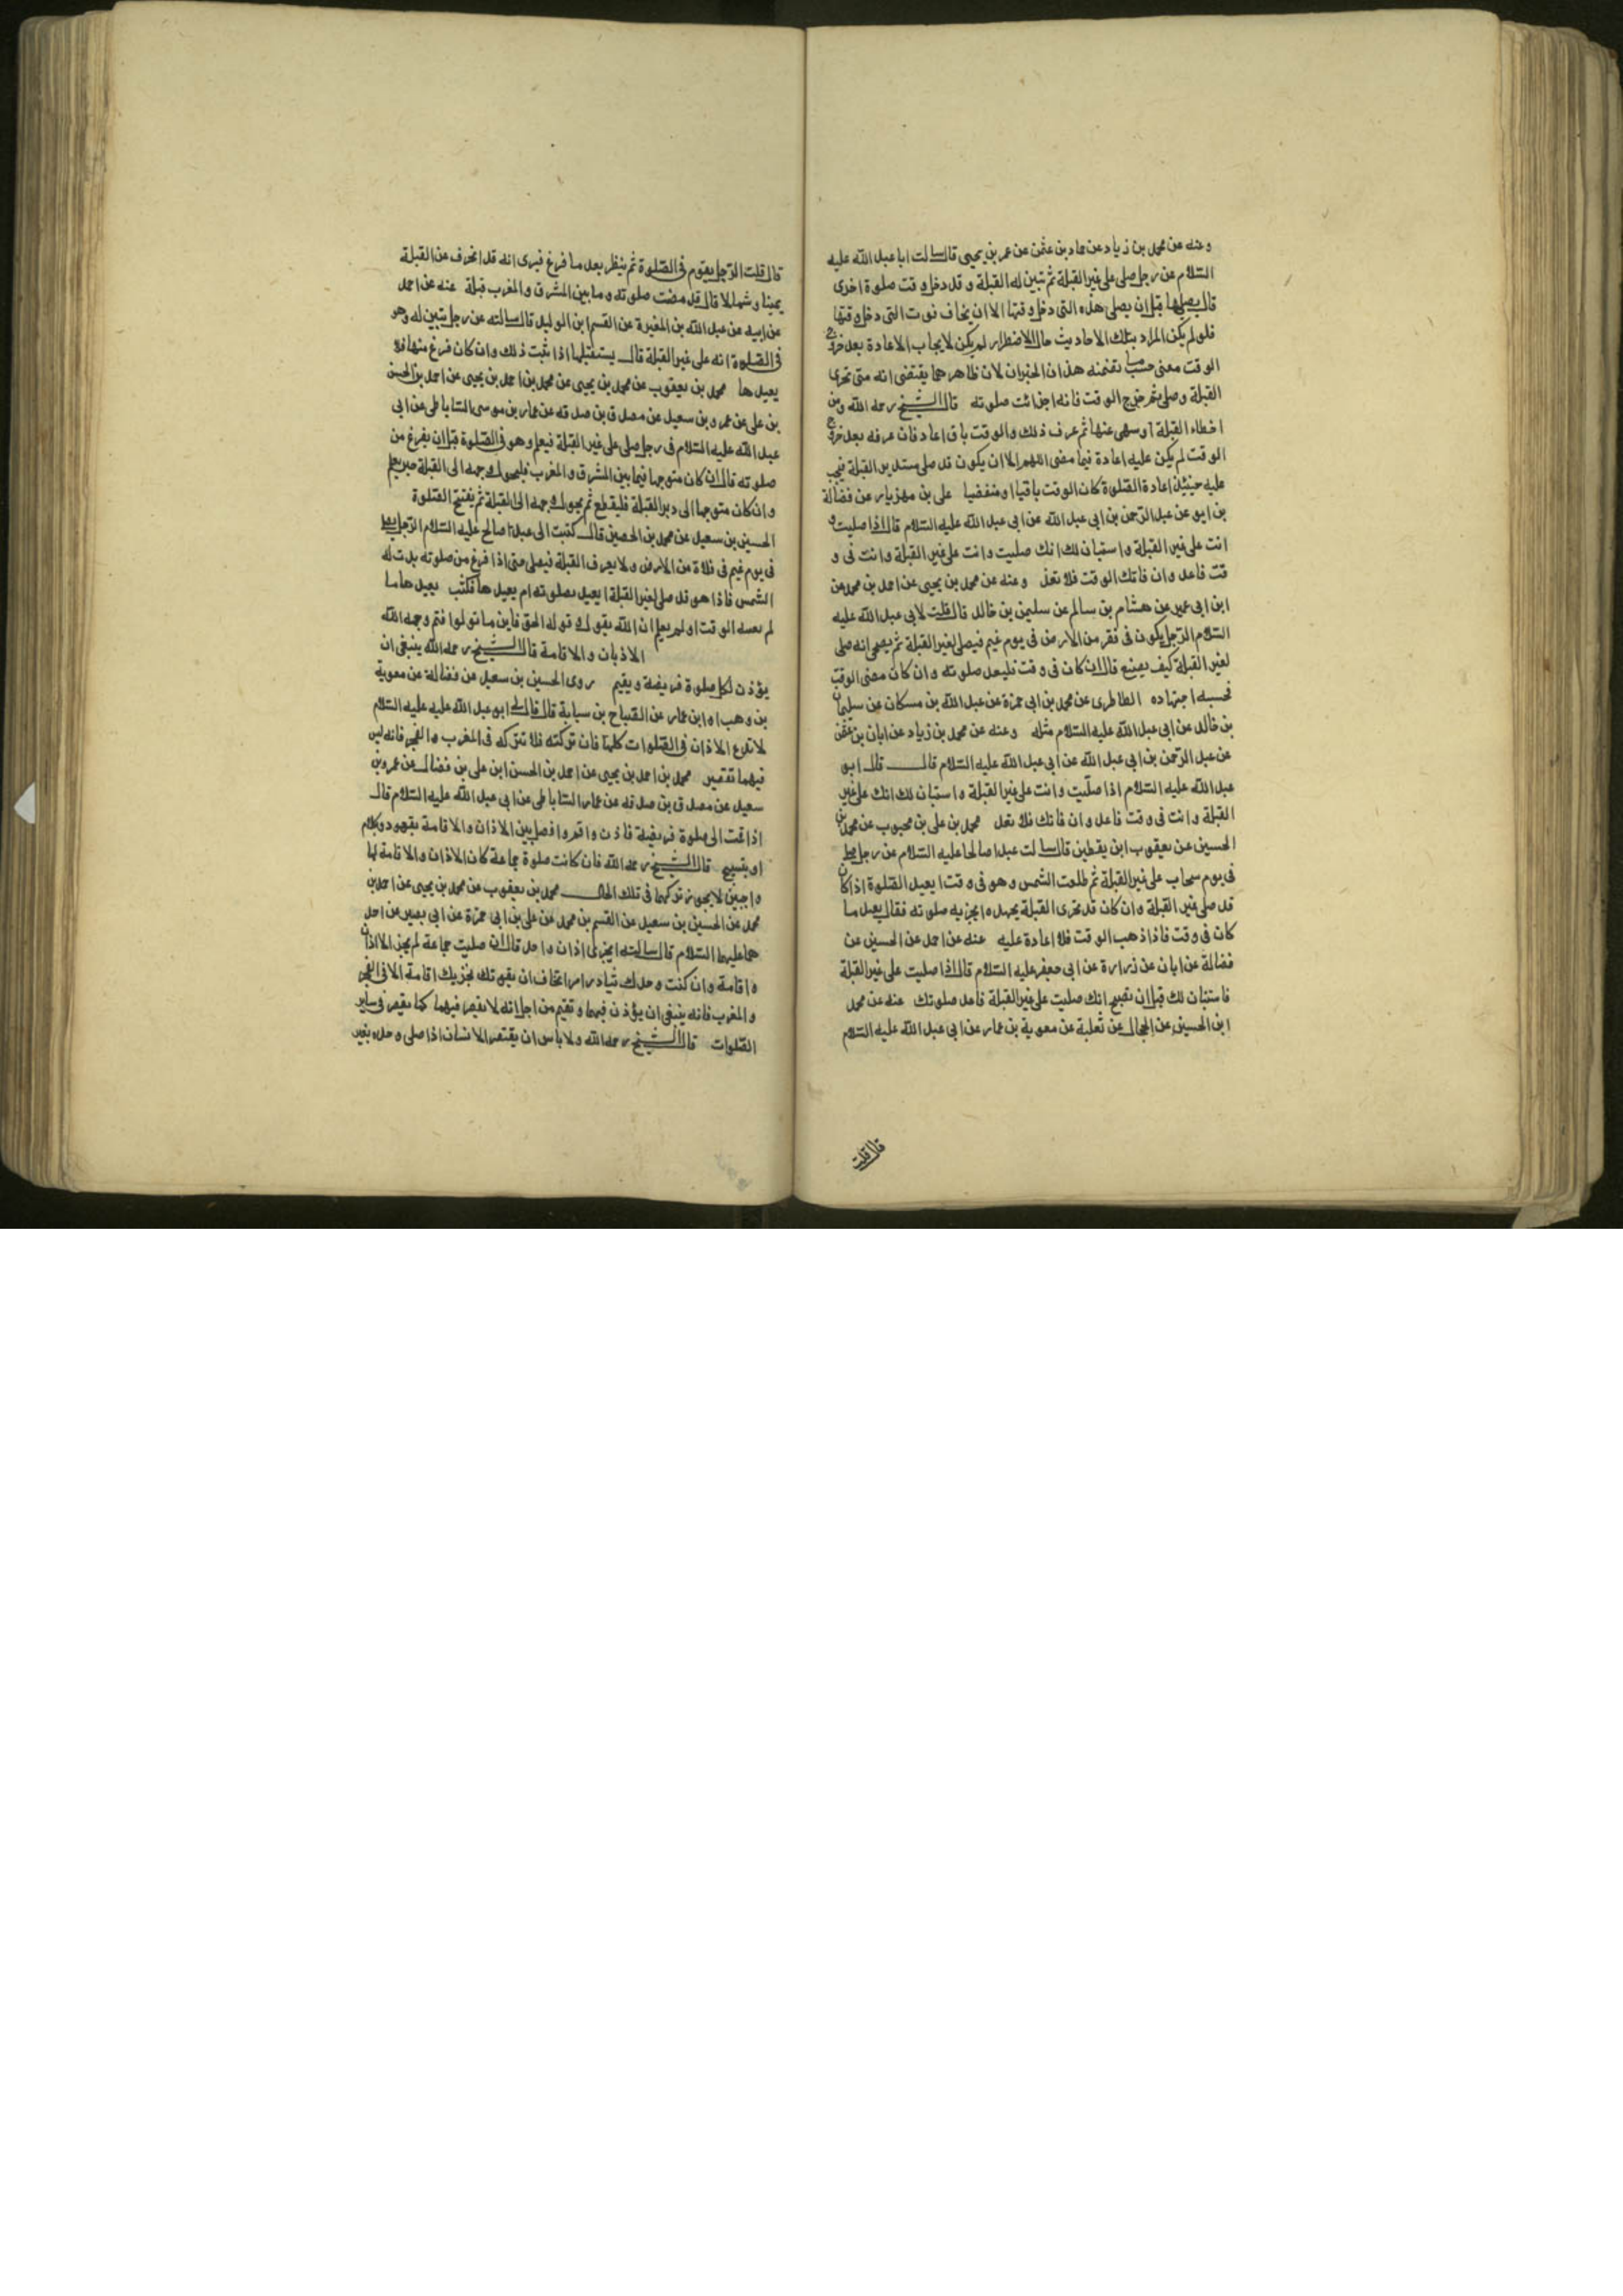 وعنه عن محمد بن زياد عن حماد بن عثمن عن عمر بن يحيى قال سالت ابا عبد الله عليه
السّلام عن رجل صلى على غير القبلة ثم تبين له القبلة وقد دخل وقت صلوة اخرى
قال يصليها قبل ان يصلى هذه التى دخل وقتها الا ان يخاف فوت التى دخل وقتها
فلو لم يكن المراد بتلك الاحاديث حال الاضطرار لم يكن لايجاب الاعادة بعد خروج
الوقت معنى حسبما تضمنه هذان الخبران لان ظاهرهما يقتضى انه متى تحرى
القبلة وصلى ثم خرج الوقت فانه اجزائت صلوته قال الشيخ رحمه الله ومن
اخطاء القبلة او سهى عنها ثم عرف ذلك والوقت باق اعاد فان عرفه بعد خروج
الوقت لم يكن عليه اعادة فيما مضى اللهم الا ان يكون قد صلى مستدبر القبلة فيجب
عليه حينئذ اعادة الصّلوة كان الوقت باقيا او منقضيا على بن مهزيار عن فضالة
بن ايو عن عبد الرّحمن بن ابى عبد الله عن ابى عبد الله عليه السّلام قال اذا صليت و
انت على غير القبلة واستبان لك انك صليت وانت على غير القبلة وانت فى و
قت فاعد وان فاتك الوقت فلا تعد وعنه عن محمد بن يحيى عن احمد بن محمد عن
ابن ابى عمير عن هشام بن سالم عن سليمن بن خالد قال قلت لابى عبد الله عليه
السّلام الرّجل يكون فى قفر من الارض فى يوم غيم فيصلى لغير القبلة ثم يصحى انه صلى
لغير القبلة كيف يصنع قال ان كان فى وقت فليعد صلوته وان كان مضى الوقت
فحسبه اجتهاده الطاطرى عن محمد بن ابى حمزة عن عبد الله بن مسكان عن سليمان
بن خالد عن ابى عبد الله عليه السّلام مثله وعنه عن محمد بن زياد عن ابان بن عثمن
عن عبد الرّحمن بن ابى عبد الله عن ابى عبد الله عليه السّلام قال قال ابو
عبد الله عليه السّلام اذا صلّيت وانت على غير القبلة واستبان لك انك على غير
القبلة وانت فى وقت فاعد وان فاتك فلا تعد محمد بن على بن محبوب عن محمد بن
الحسين عن يعقوب ابن يقطين قال سالت عبدا صالحا عليه السّلام عن رجل صلى
فى يوم سحاب على غير القبلة ثم طلعت الشمس وهو فى وقت ايعيد الصّلوة اذا كان
قد صلى غير القبلة وان كان قد تحرى القبلة بجهده ايجزيه صلوته فقال يعيد ما
كان فى وقت فاذا ذهب الوقت فلا اعادة عليه عنه عن احمد عن الحسين عن
فضالة عن ابان عن زرارة عن ابى جعفر عليه السّلام قال اذا صليت على غير القبلة
فاستبان لك قبل ان تصبح انك صليت على غير القبلة فاعد صلوتك عنه عن محمد
ابن الحسين عن الحجال عن ثعلبة عن معوية بن عمار عن ابى عبد الله عليه السّلام
قال قلت
قال قلت الرّجل يقوم فى الصّلوة ثم ينظر بعد ما فرغ فيرى انه قد انحرف عن القبلة
يمينا وشمالا قال قد مضت صلوته وما بين المشرق والمغرب قبلة عنه عن احمد
عن ابيه عن عبد الله بن المغيرة عن القسم ابن الوليد قال سالته عن رجل تبين له وهو
فى الصّلوة انه على غير القبلة قال يستقبلها اذا ثبت ذلك وان كان فرغ منها فلا
يعيدها محمد بن يعقوب عن محمد بن يحيى عن محمد بن احمد بن يحيى عن احمد بن الحسن
بن على عن عمرو بن سعيد عن مصدق بن صدقه عن عمار بن موسى السّاباطى عن ابى
عبد الله عليه السّلام فى رجل صلى على غير القبلة فيعلم وهو فى الصّلوة قبل ان يفرغ من
صلوته قال ان كان متوجها فيما بين المشرق والمغرب فليحول وجهه الى القبلة حين يعلم
وان كان متوجها الى دبر القبلة فليقطع ثم يحول وجهه الى القبلة ثم يفتتح الصّلوة
الحسين بن سعيد عن محمد بن الحصين قال كتبت الى عبدا صالح عليه السّلام الرّجل يصلى
فى يوم غيم فى فلاة من الارض ولا يعرف القبلة فيصلى متى اذا فرغ من صلوته بدت له
الشمس فاذا هو قد صلى لغير القبلة ايعيد بصلوته ام يعيدها فكتب يعيدها ما
لم يفته الوقت اولم يعلم ان الله يقول و قوله الحق فاين ما تولوا فثم وجه الله
الاذان والاقامة قال الشيخ رحمه الله ينبغى ان
يؤذن لكل صلوة فريضة ويقيم روى الحسين بن سعيد عن فضالة عن معوية
بن وهب او ابن عمار عن الصّباح بن سيابة قال قال لى ابو عبد الله عليه عليه السّلام
لا تدع الاذان فى الصّلوات كلها فان تركته فلا تتركه فى المغرب والفجر فانه ليس
فيهما تقصير محمد بن احمد بن يحيى عن احمد بن الحسن ابن على بن فضال عن عمرو بن
سعيد عن مصدق بن صدقه عن عمار السّاباطى عن ابى عبد الله عليه السّلام قال
اذا قمت الى صلوة فريضة فاذن واقم وافصل بين الاذان والاقامة بقعود وكلام
او بتسبيح قال الشيخ رحمه الله فان كانت صلوة جماعة كان الاذان والاقامة لها
واجبين لا يجوز تركهما فى تلك الحال محمد بن يعقوب عن محمد بن يحيى عن احمد بن
محمد عن الحسين بن سعيد عن القسم بن محمد عن على بن ابى حمزة عن ابى بصير عن احد
هما عليهما السّلام قال سالته ايجزى اذان واحد قال ان صليت جماعة لم يجز الا اذان
واقامة وان كنت وحدك تبادر امرا تخاف ان يفوتك تجزيك اقامة الا فى الفجر
والمغرب فانه ينبغى ان يؤذن فيهما وتقيم من اجل انه لا يقصر فيهما كما يقصر فى ساير
الصّلوات قال الشيخ رحمه الله ولا باس ان يقتصر الانسان اذا صلى وحده بغير